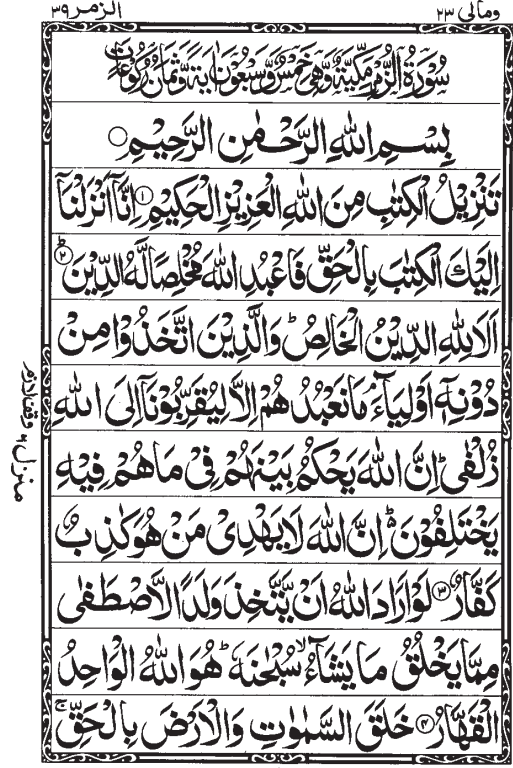 ومالی ٢٣
الزمر ٣٩
سُوْرَةُ الزُّمَرِ مَكِّيَّةٌ وَّهِيَ خَمْسٌ وَّسَبْعُوْنَ اٰيَةً وَّثَمَانُ رُكُوْعَاتٍ
بِسْمِ اللهِ الرَّحْمٰنِ الرَّحِيْمِ
تَنْزِيْلُ الْكِتٰبِ مِنَ اللهِ الْعَزِيْزِ الْحَكِيْمِ ۝١ اِنَّاۤ اَنْزَلْنَاۤ
اِلَيْكَ الْكِتٰبَ بِالْحَقِّ فَاعْبُدِ اللهَ مُخْلِصًا لَّهُ الدِّيْنَ ؕ۝٢
اَلَا لِلّٰهِ الدِّيْنُ الْخَالِصُ ؕ وَالَّذِيْنَ اتَّخَذُوْا مِنْ
دُوْنِهٖۤ اَوْلِيَآءَ ۘ مَا نَعْبُدُهُمْ اِلَّا لِيُقَرِّبُوْنَاۤ اِلَى اللهِ
زُلْفٰى ؕ اِنَّ اللهَ يَحْكُمُ بَيْنَهُمْ فِيْ مَا هُمْ فِيْهِ
يَخْتَلِفُوْنَ ؕ۬ اِنَّ اللهَ لَا يَهْدِيْ مَنْ هُوَ كٰذِبٌ
كَفَّارٌ ۝٣ لَوْ اَرَادَ اللهُ اَنْ يَّتَّخِذَ وَلَدًا لَّاصْطَفٰى
مِمَّا يَخْلُقُ مَا يَشَآءُ ۙ سُبْحٰنَهٗ ؕ هُوَ اللهُ الْوَاحِدُ
الْقَهَّارُ ۝٤ خَلَقَ السَّمٰوٰتِ وَالْاَرْضَ بِالْحَقِّ ۚ
منزل ٦ وقف لازم